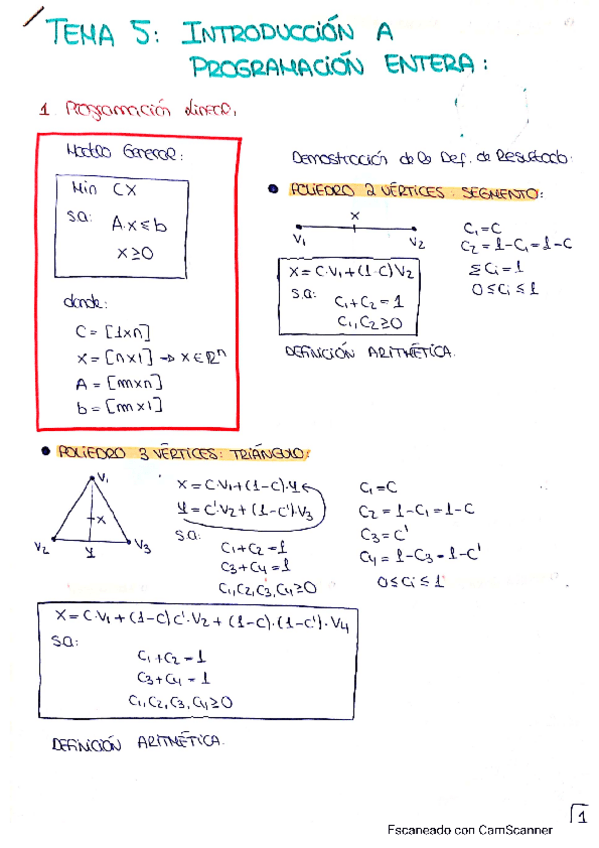 TEMA 5: INTRODUCCIÓN A
PROGRAMACIÓN ENTERA:
1 Programación lineal.
Modelo General:
Min CX
sa: A·x ≤ b
x ≥ 0
donde:
C = [1xn]
x = [nx1] → x ∈ ℝⁿ
A = [mxn]
b = [mx1]
Demostración de la Def. de Resultado:
• POLIEDRO 2 VÉRTICES: SEGMENTO:
x
V₁ V₂
C₁ = C
C₂ = 1-C₁ = 1-C
ΣCᵢ = 1
0 ≤ Cᵢ ≤ 1
x = C·V₁ + (1-C) V₂
s.a:
C₁ + C₂ = 1
C₁, C₂ ≥ 0
DEFINICIÓN ARITMÉTICA.
• POLIEDRO 3 VÉRTICES: TRIÁNGULO:
V₁
x
V₂ y V₃
x = C·V₁ + (1-C)·y
y = C'·V₂ + (1-C')·V₃
s.a:
C₁ + C₂ = 1
C₃ + C₄ = 1
C₁, C₂, C₃, C₄ ≥ 0
C₁ = C
C₂ = 1-C₁ = 1-C
C₃ = C'
C₄ = 1-C₃ = 1-C'
0 ≤ Cᵢ ≤ 1
x = C·V₁ + (1-C) C'·V₂ + (1-C)·(1-C')·V₄
sa:
C₁ + C₂ = 1
C₃ + C₄ = 1
C₁, C₂, C₃, C₄ ≥ 0
DEFINICIÓN ARITMÉTICA.
1
Escaneado con CamScanner